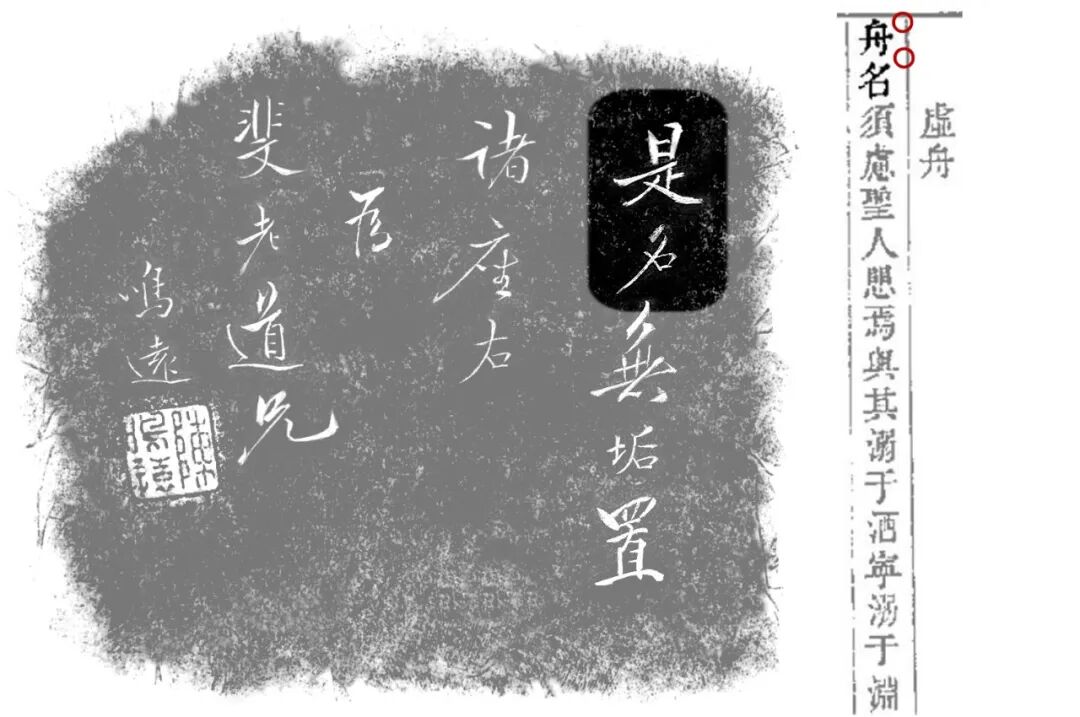 虛舟
舟名須慮聖人愳焉與其溺于酒寧溺于淵
是名無垢置
諸座右
為
斐老道兄
鳴遠